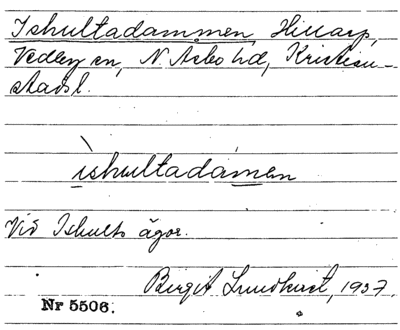 Ishultadammen, Hillarp,
Vedby sn, N. Åsbo hd, Kristian-
stads l.
ìshultadámen
Vid Ishults ägor.
Birgit Lundkvist, 1937.
Nr 5506.